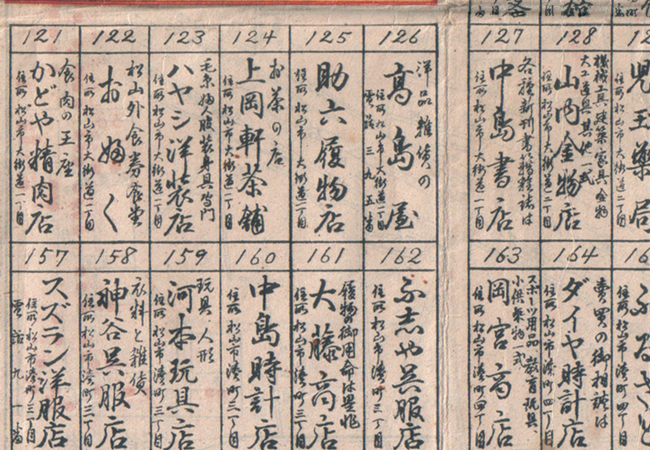 121
食肉の王座
かどや精肉店
住所 松山市大街道一丁目
122
松山外食券食堂
おふく
住所 松山市大街道二丁目
123
毛糸婦人服装身具専門
ハヤシ洋装店
住所 松山市大街道一丁目
124
お茶の店
上岡軒茶舗
住所 松山市大街道二丁目
125
助六履物店
住所 松山市大街道一丁目
126
洋品雑貨の
高島屋
住所 松山市大街道二丁目
電話三九五番
127
各種新刊書籍雑誌は
中島書店
住所 松山市大街道一丁目
128
機械工具、建築、家具、金物
大工道具其他一式
山内金物店
住所 松山市大街道二丁目
児玉薬局
住所 松山市大街道二丁目
157
スズラン洋服店
住所 松山市湊町三丁目
電話九一番
158
衣料と雑貨
神谷呉服店
住所 松山市湊町三丁目
159
玩具人形
河本玩具店
住所 松山市湊町三丁目
160
中島時計店
住所 松山市湊町三丁目
161
履物御用命は是非
大藤商店
住所 松山市湊町三丁目
162
ふじや呉服店
住所 松山市湊町三丁目
163
スポーツ用品 教育玩具
小供乗物一式
岡宮商店
住所 松山市湊町四丁目
164
売買の御相談は
ダイヤ時計店
住所 松山市湊町四丁目
ふるさと
住所 松山市湊町四丁目